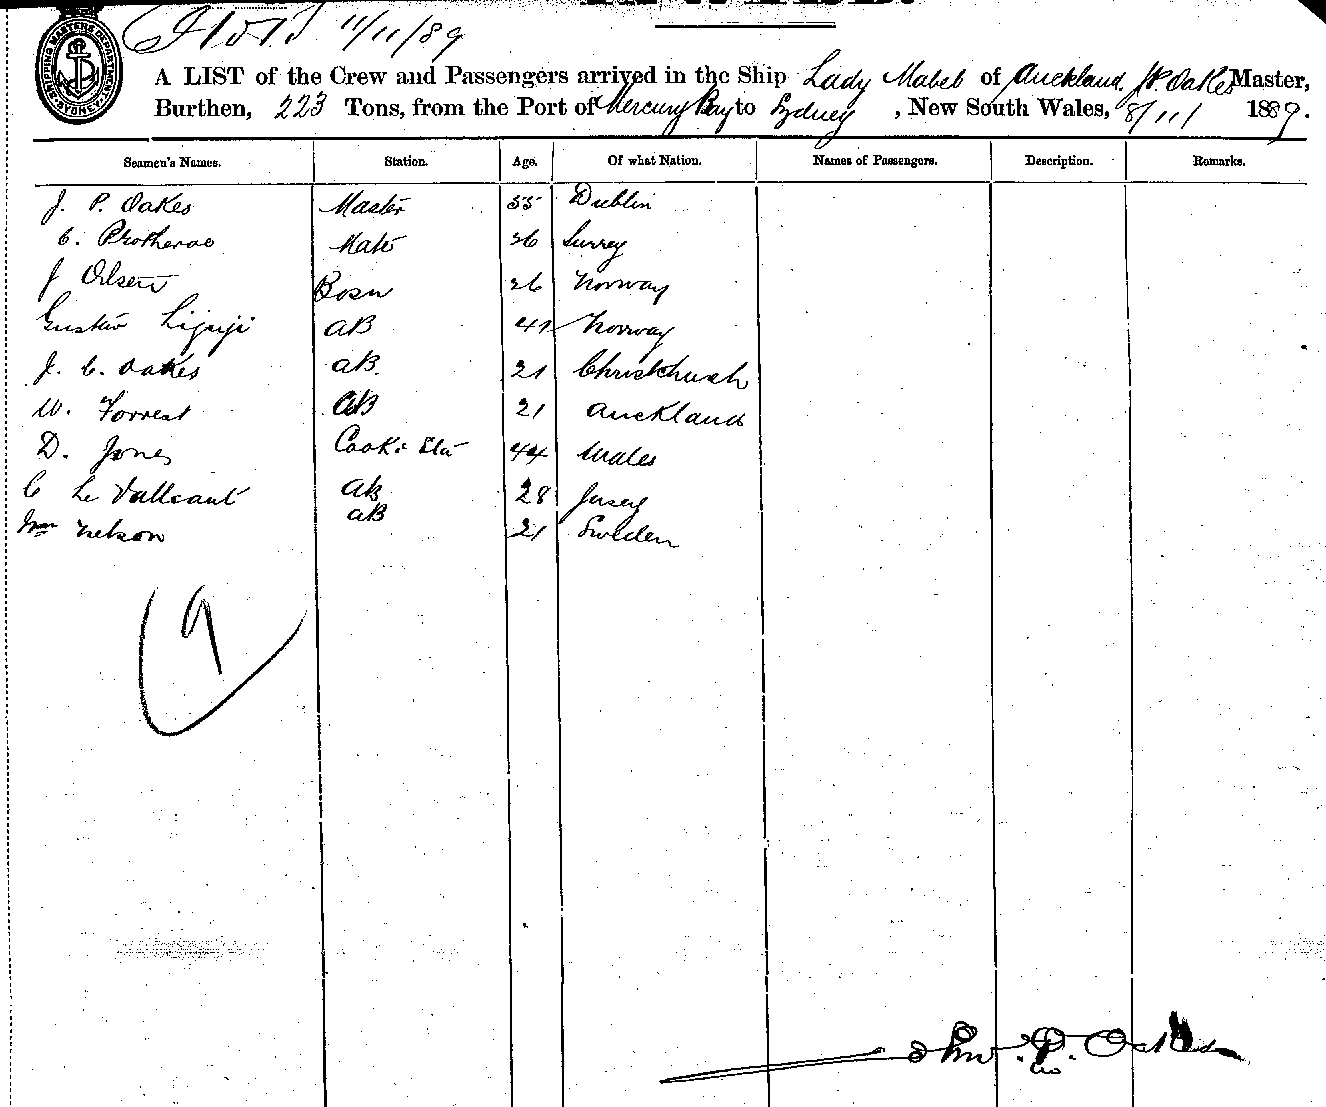 11/11/89
SHIPPING MASTERS DEPARTMENT SYDNEY
A LIST of the Crew and Passengers arrived in the Ship Lady Mabel of Auckland. J.P. Oakes Master,
Burthen, 223 Tons, from the Port of Mercury Bay to Sydney, New South Wales, 8/11/ 1889.
Seamen's Names. Station. Age. Of what Nation. Names of Passengers. Description. Remarks.
J. P. Oakes Master 55 Dublin
C. Protheroe Mate 36 Surrey
J Olsen Bosn 26 Norway
Gustav AB 41 Norway
J. C. Oakes AB. 21 Christchurch
W. Forrest AB 21 Auckland
D. Jones Cook & Std 44 Wales
C Le Valleant AB 28 Jersey
Wm Nelson AB 21 Sweden
9
John. P. Oakes